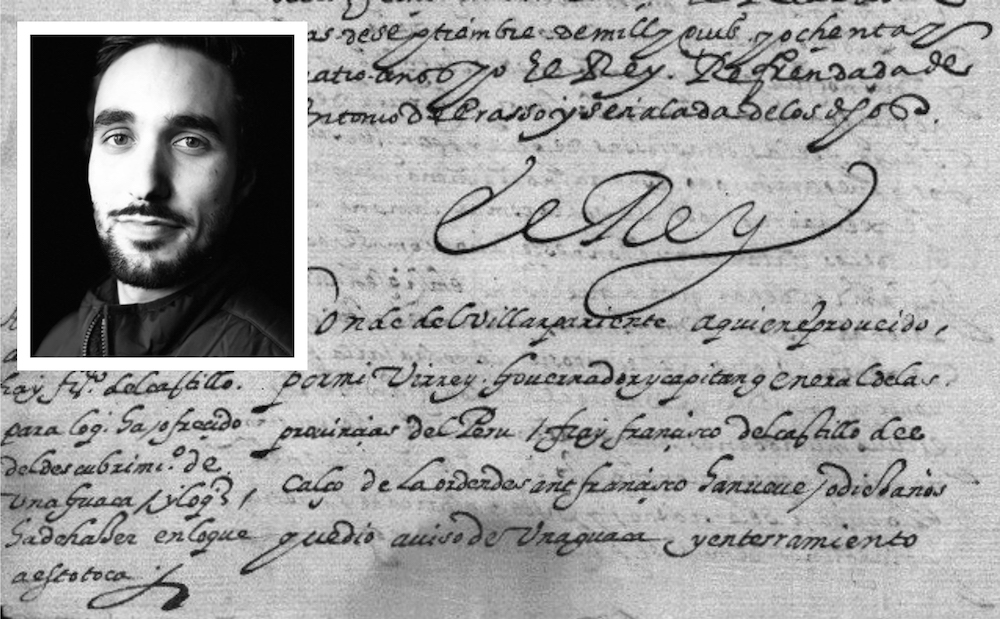 as de septiembre de mill y quis. y ochenta y
quatro anos. yo El Rey. Refrendada de
Antonio de Erasso y señalada de los del
el Rey
Conde del Villar pariente a quien e proueido,
por mi Virrey. Gouernador y capitan general de las.
prouincias del Peru fray francisco del castillo de
calço de la orden de sant francisco ha nueue o diez años
que dio auiso de Una guaca y enterramiento
fray fr.co del castillo.
para lo q. ha ofrecido
del descubrimi.o de
Una guaca y lo q
ha de hauer en lo que
a esto toca